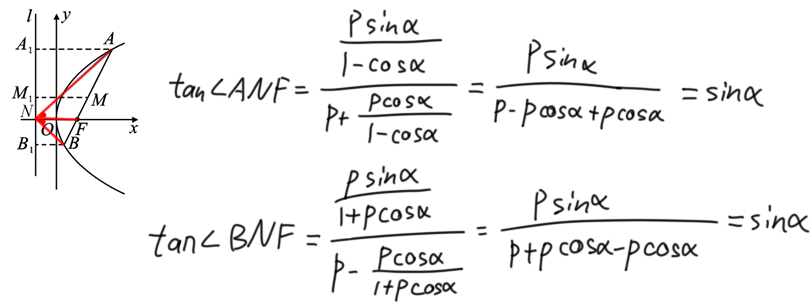 l
y
A₁
A
M₁
M
N
O
F
x
B₁
B
tan∠ANF = \frac{\frac{psinα}{1-cosα}}{p+\frac{pcosα}{1-cosα}} = \frac{psinα}{p-pcosα+pcosα} = sinα
tan∠BNF = \frac{\frac{psinα}{1+pcosα}}{p-\frac{pcosα}{1+pcosα}} = \frac{psinα}{p+pcosα-pcosα} = sinα